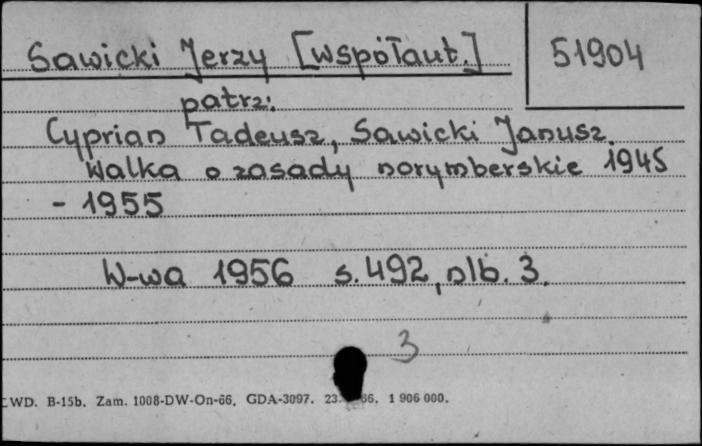 Sawicki Jerzy [współaut.] 51904
patrz:
Cyprian Tadeusz, Sawicki Janusz.
Walka o zasady norymberskie 1945
- 1955
W-wa 1956 s. 492, nlb. 3.
3
WD. B-15b. Zam. 1008-DW-On-66, GDA-3097. 23. 66. 1 906 000.